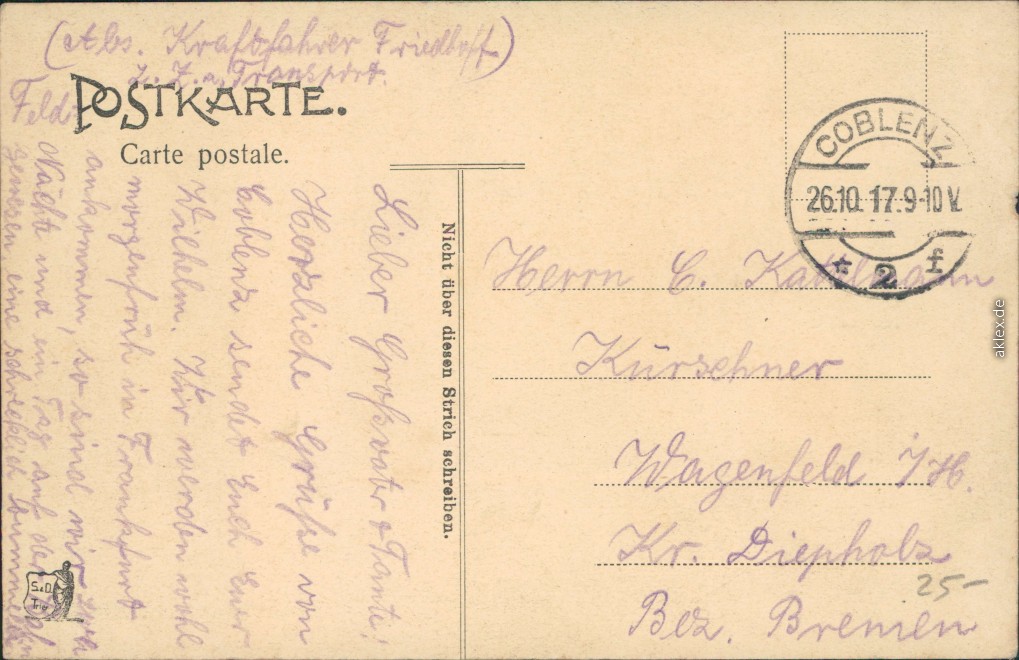 (Abs. Kraftfahrer Friedhoff)
z. Z. a. Transport.
Feld-
POSTKARTE.
Carte postale.
Lieber Großvater & Tante!
Herzliche Grüße von
Coblenz sendet Euch Euer
Wilhelm. Wir werden wohl
morgenfrüh in Frankfurt
ankommen, so sind wir zwei
Nächte und ein Tag auf der Bahn
gewesen, eine schrecklich
Nicht über diesen Strich schreiben.
COBLENZ
26.10.17.9-10 V.
* 2 f
Herrn C.
Kürschner
Wagenfeld
Kr. Diepholz
Bez. Bremen
25-
S.&D.
Trier
aklex.de